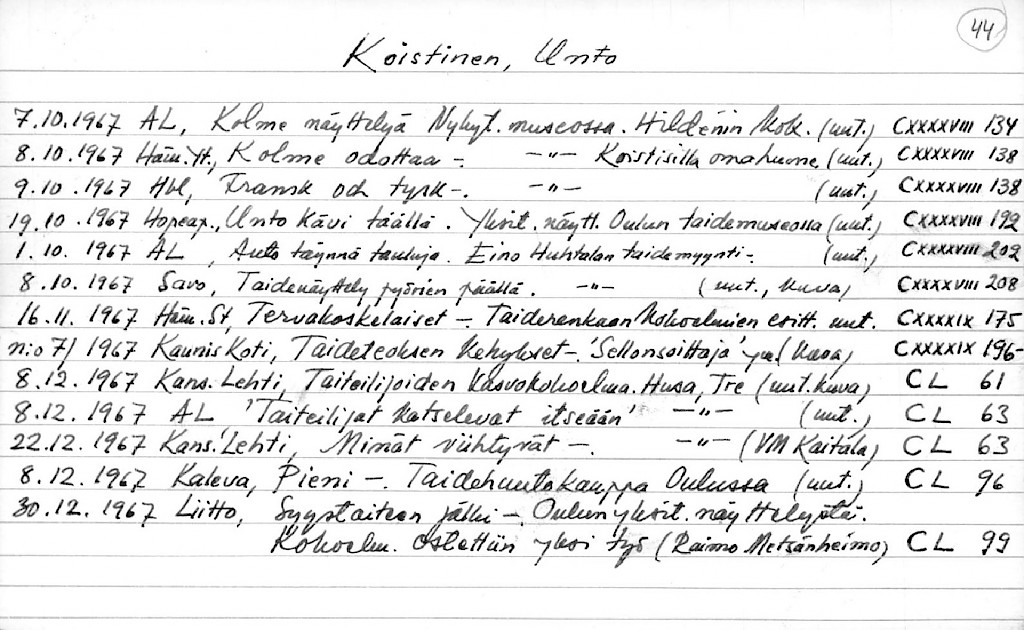 44
Koistinen, Unto
7.10.1967 AL, Kolme näyttelyä Nykyt. museossa. Hildenin kok. (uut.) CXXXXVIII 134
8.10.1967 Häm. Yt., Kolme odottaa -. -"- Koistisilla oma huone (uut.) CXXXXVIII 138
9.10.1967 Hbl, Fransk och tysk-. -"- (uut.) CXXXXVIII 138
19.10.1967 Unto kävi täällä. Yksit. näytt. Oulun taidemuseossa (uut.) CXXXXVIII 192
1.10.1967 AL, Auto täynnä tauluja. Eino Huhtalan taidemyynti-. (uut.) CXXXXVIII 202
8.10.1967 Savo, Taidenäyttely pyörien päällä. -"- (uut., kuva) CXXXXVIII 208
16.11.1967 Häm. St, Tervakoskelaiset -. Taiderenkaan kokoelmien esitt. uut. CXXXXIX 175
n:o 7/1967 Kaunis Koti, Taideteoksen kehykset -. 'Sellonsoittaja' kuva) CXXXXIX 196-
8.12.1967 Kans. Lehti, Taiteilijoiden kasvokokoelma. Husa, Tre (uut. kuva) CL 61
8.12.1967 AL 'Taiteilijat katselevat itseään' -"- (uut.) CL 63
22.12.1967 Kans. Lehti, Minät viihtyvät -. -"- (VM Kaitala) CL 63
8.12.1967 Kaleva, Pieni -. Taidehuutokauppa Oulussa (uut.) CL 96
30.12.1967 Liitto, Syystaiteen jälki -. Oulun yksit. näyttelystä.
Kokoelm. ostettiin yksi työ (Raimo Metsänheimo) CL 99